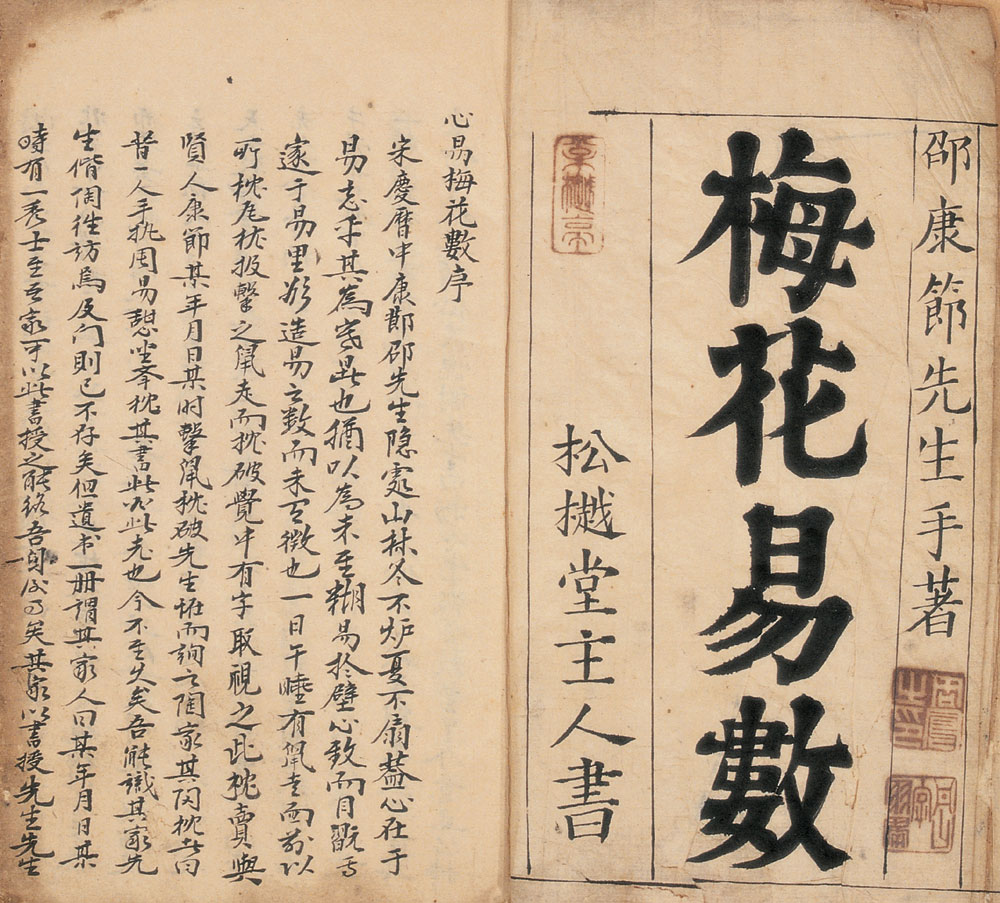 邵康節先生手著
梅花易數
松樾堂主人書
心易梅花數序
宋慶曆中康節邵先生隐處山林冬不炉夏不扇蓋心在于
易忘乎其為寒暑也猶以為未至糊易於壁心致而目翫焉
邃于易里欲造易之数而未有徴也一日午睡有鼠走而前以
所枕瓦枕投擊之鼠走而枕破覺中有字取視之此枕賣與
賢人康節某年月日某时擊鼠枕破先生怪而詢之陶家其閃枕者曰
昔一人手执周易憩坐奉枕其書此必此老也今不至久矣吾能識其家先
生偕徃訪焉及门則已不存矣但遺书一册謂其家人曰某年月日某
時有一秀士至吾家可以此書授之能终吾身後事矣其家以書授先生先生